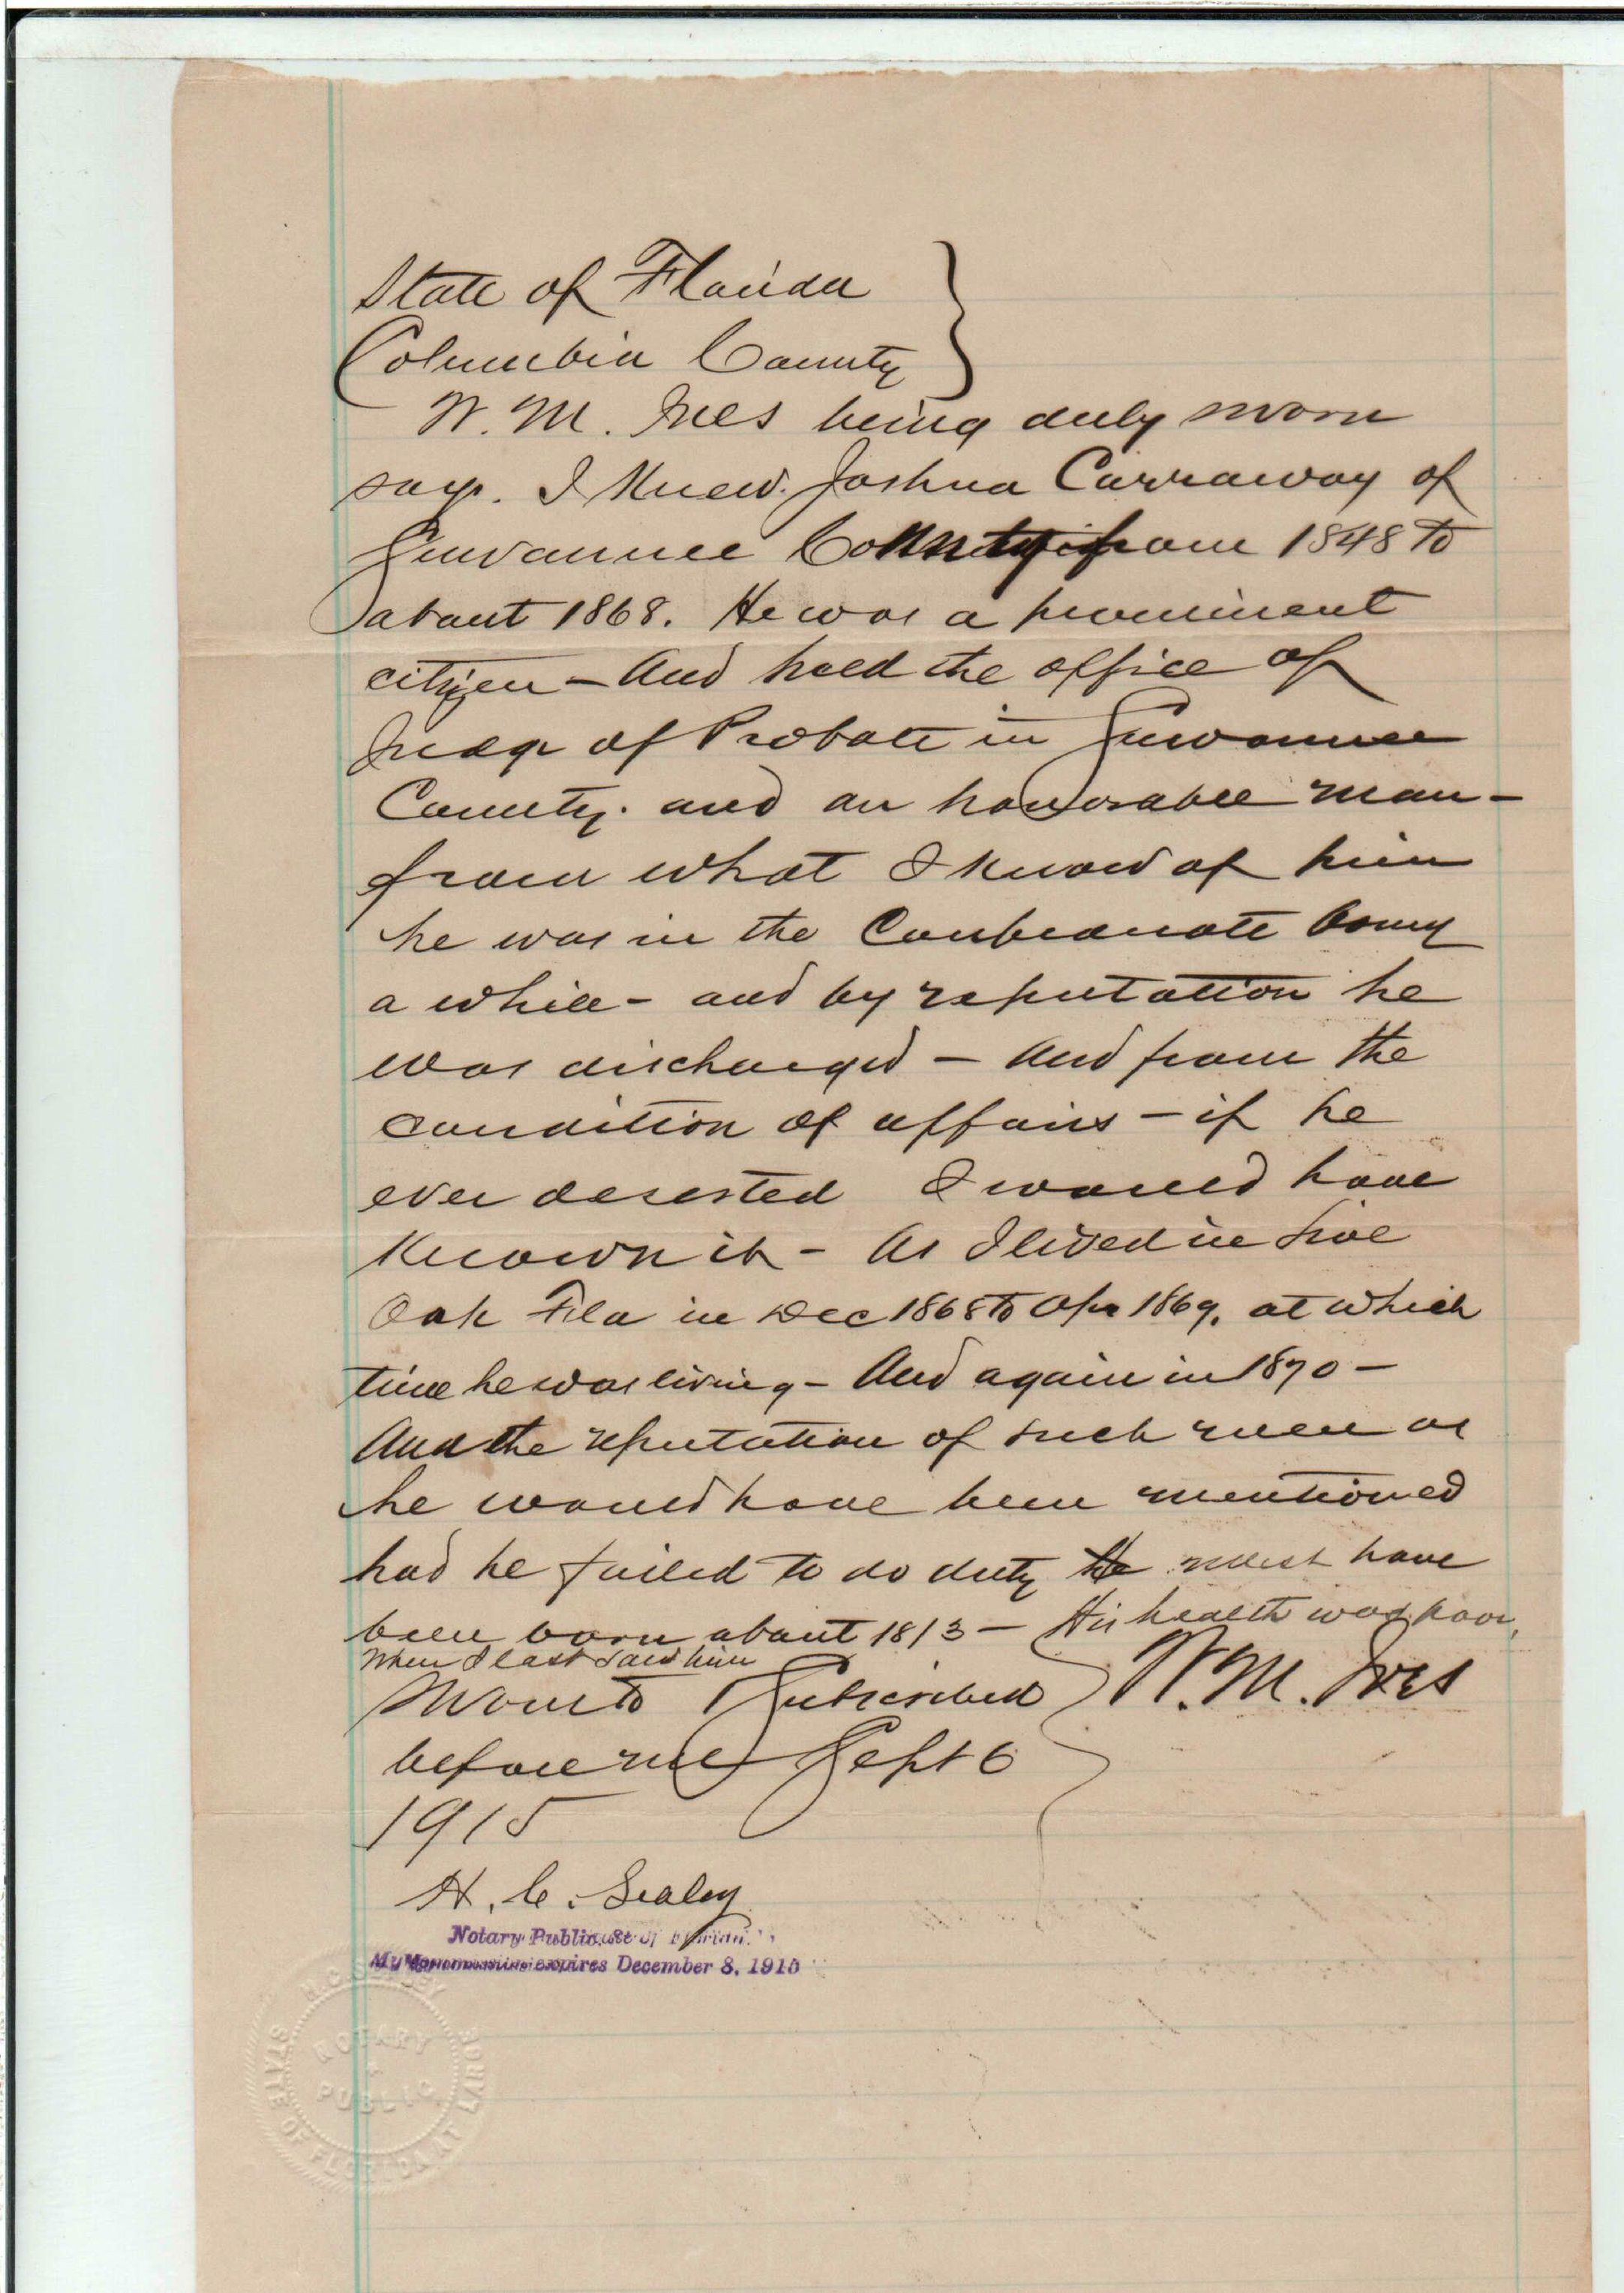 State of Florida
Columbia County
W. M. Ives being duly sworn
says. I Knew. Joshua Carraway of
Suwannee County from 1848 to
about 1868. He was a prominent
citizen - And held the office of
Judge of Probate in Suwannee
County. and an honorable man -
from what I know of him
he was in the Confederate Army
a while - and by reputation he
was discharged - And from the
condition of affairs - if he
ever deserted I would have
Known it - As I lived in Live
Oak Fla in Dec 1868 to Apr 1869. at which
time he was living - And again in 1870 -
And the reputation of such men as
he would have been mentioned
had he failed to do duty He must have
been born about 1813 - His health was poor,
when I last saw him
Sworn to & Subscribed W. M. Ives
before me Sept 6
1915
H. C. Sealey
Notary Public, State of Florida
My Commission expires December 8, 1915
H. C. SEALEY
NOTARY
PUBLIC
STATE OF FLORIDA AT LARGE